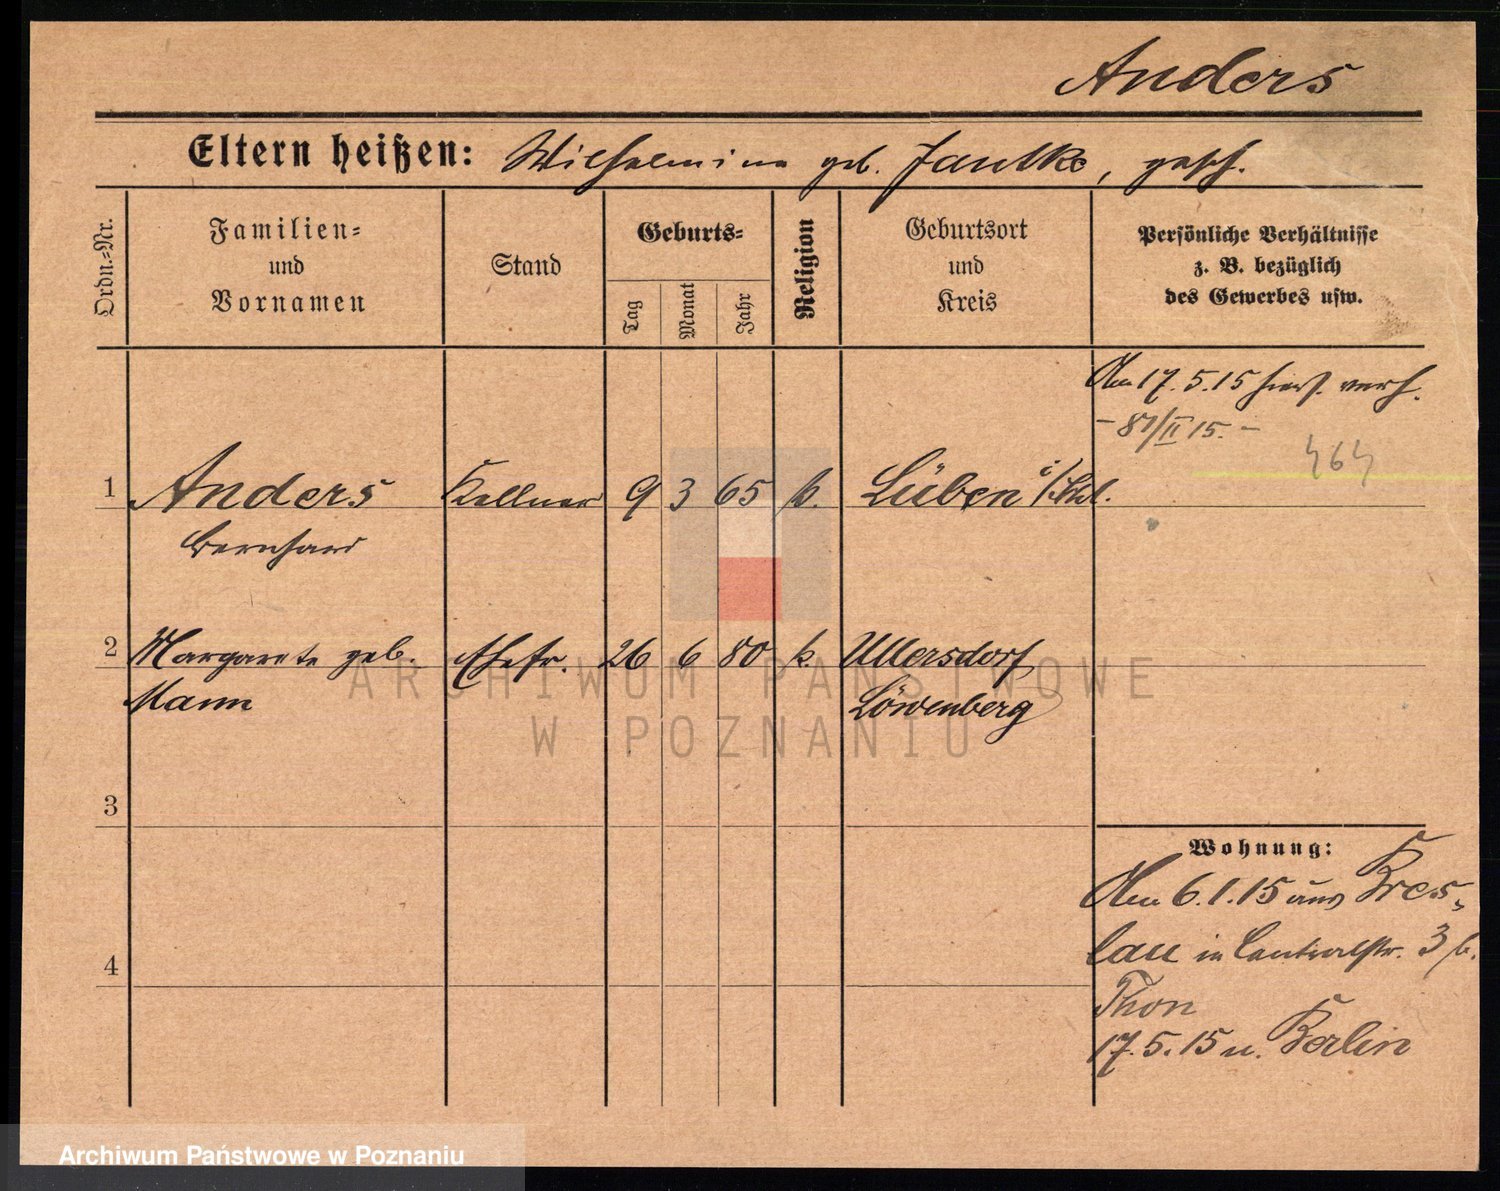 Anders
Eltern heißen: Wilhelmine geb. Jaulke, gesch.
Ordn.-Nr.
Familien-
und
Vornamen
Stand
Geburts-
Tag
Monat
Jahr
Religion
Geburtsort
und
Kreis
Persönliche Verhältnisse
z. B. bezüglich
des Gewerbes usw.
Am 17.5.15 hiers. verh.
- 87/II 15. -
464
1 Anders Kellner 9 3 65 k. Lüben i/Schl.
Bernhard
2 Margarete geb. Ehefr. 26 6 80 k. Ullersdorf
Mann Löwenberg
3
4
Wohnung:
Am 6.1.15 aus Bres-
lau in Centralstr. 3 b.
Thon
17.5.15 n. Berlin
ARCHIWUM PAŃSTWOWE
W POZNANIU
Archiwum Państwowe w Poznaniu